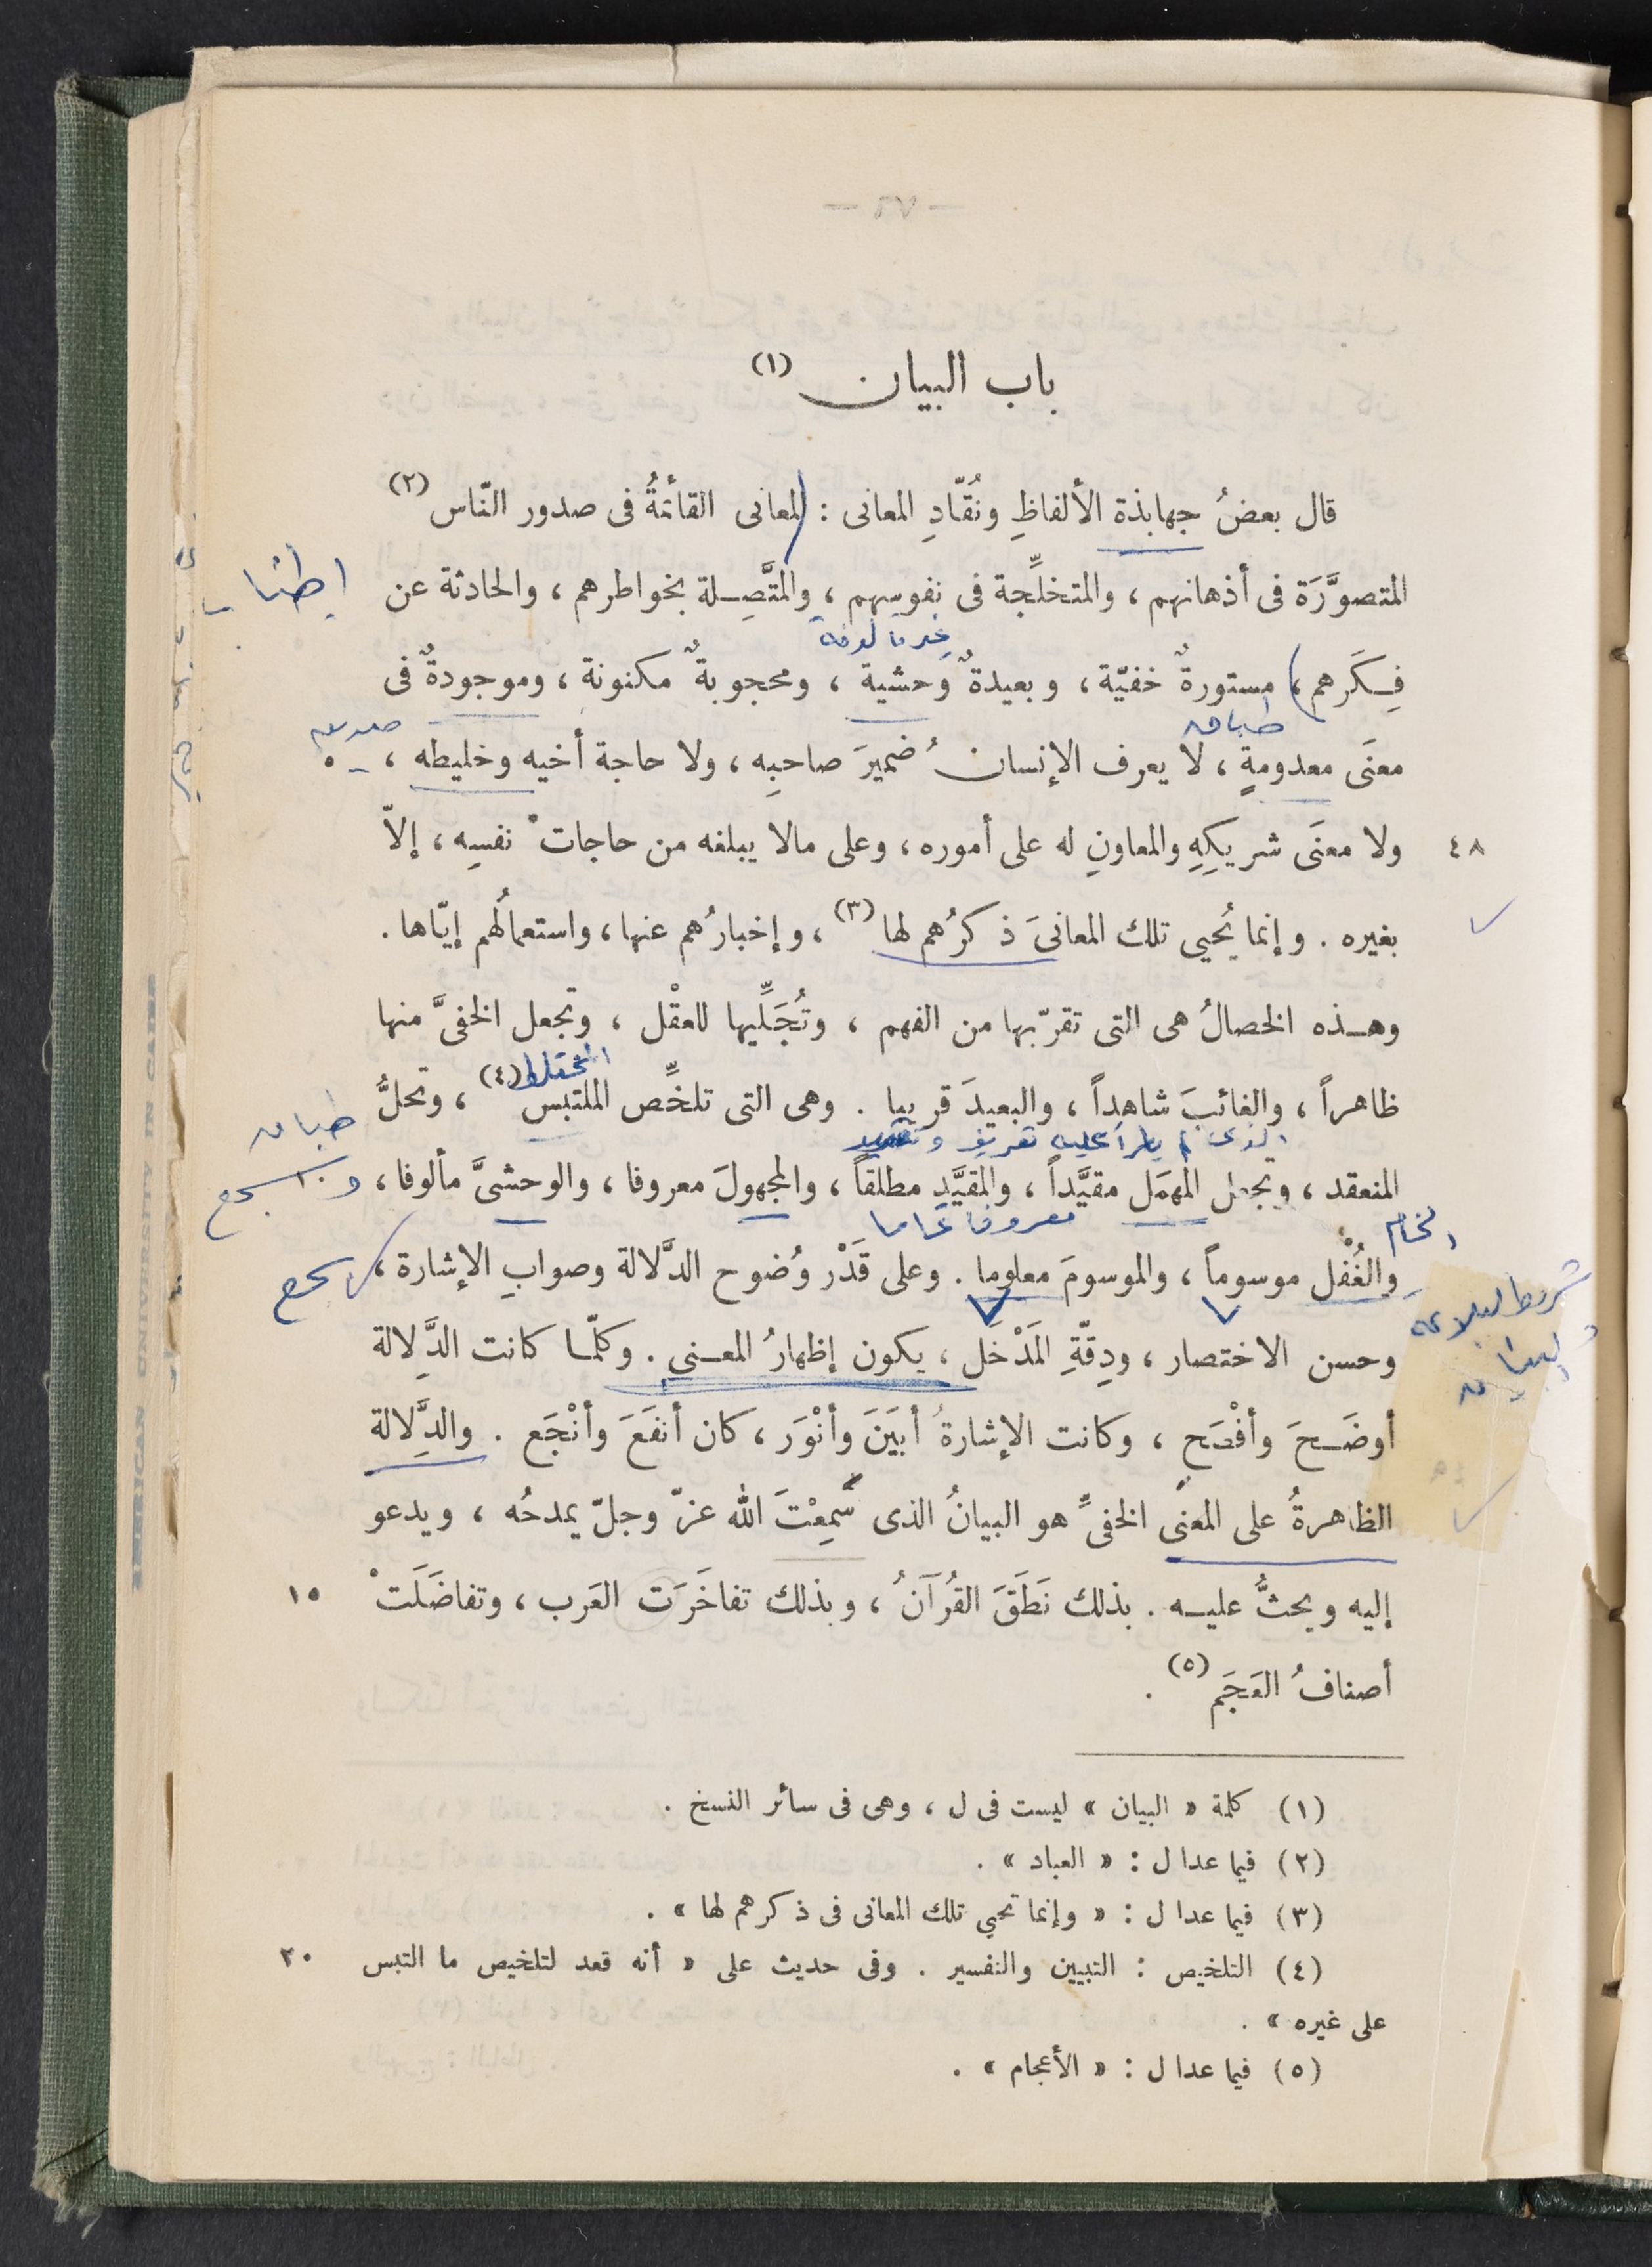 باب البيان (١)
قال بعضُ جهابذة الألفاظِ ونُقّادِ المعانى : المعانى القائمةُ فى صدور النّاس (٢)
المتصوَّرَة فى أذهانهم ، والمتخلِّجة فى نفوسهم ، والمتَّصِلة بخواطرهم ، والحادثة عن
اطناب
غير مألوفة
فِكَرهم ، مستورةٌ خفيّة ، وبعيدةٌ وحشية ، ومحجوبةٌ مكنونة ، وموجودةٌ فى
طباق
صديق
معنَى معدومةٍ ، لا يعرف الإنسانُ ضميرَ صاحبِه ، ولا حاجة أخيه وخليطه ، ٥
٤٨ ولا معنَى شريكِهِ والمعاونِ له على أموره ، وعلى مالا يبلغه من حاجات نفسِه ، إلاّ
بغيره . وإنما يُحيى تلك المعانىَ ذكرُهم لها (٣) ، وإخبارُهم عنها ، واستعمالُهم إيّاها .
وهذه الخصالُ هى التى تقرّبها من الفهم ، وتُجَلِّيها للعقْل ، وتجعل الخفىَّ منها
المختلط
ظاهراً ، والغائبَ شاهداً ، والبعيدَ قريبا . وهى التى تلخِّص الملتبس (٤) ، وتحلُّ
طباق
الذى لم يطرأ عليه تعريف وتقييد
المنعقد ، وتجعل المهمَل مقيَّداً ، والمقيَّد مطلقاً ، والمجهولَ معروفا ، والوحشىَّ مألوفا ،
و سجع
الخام
معروفا عاما
والغُفْل موسوماً ، والموسومَ معلوما . وعلى قَدْر وُضوح الدَّلالة وصوابِ الإشارة ، ١٠
سجع
شروط البلاغة
وحسن الاختصار ، ودِقّةِ المَدْخَل ، يكون إظهارُ المعنى . وكلّما كانت الدَّلالة
أوضَحَ وأفْصَح ، وكانت الإشارةُ أبيَنَ وأنْوَر ، كان أنفَعَ وأنْجَع . والدَِّلالة
٤٩
الظاهرةُ على المعنى الخفىِّ هو البيانُ الذى سَمِعْتَ الله عزّ وجلّ يمدحُه ، ويدعو
إليه ويحثُّ عليه . بذلك نَطَقَ القُرآنُ ، وبذلك تفاخَرَت العَرب ، وتفاضَلَتْ ١٥
أصنافُ العَجَم (٥) .
(١) كلمة « البيان » ليست فى ل ، وهى فى سائر النسخ .
(٢) فيما عدا ل : « العباد » .
(٣) فيما عدا ل : « وإنما تحيي تلك المعانى فى ذكرهم لها » .
(٤) التلخيص : التبيين والتفسير . وفى حديث على « أنه قعد لتلخيص ما التبس ٢٠
على غيره » .
(٥) فيما عدا ل : « الأعجام » .